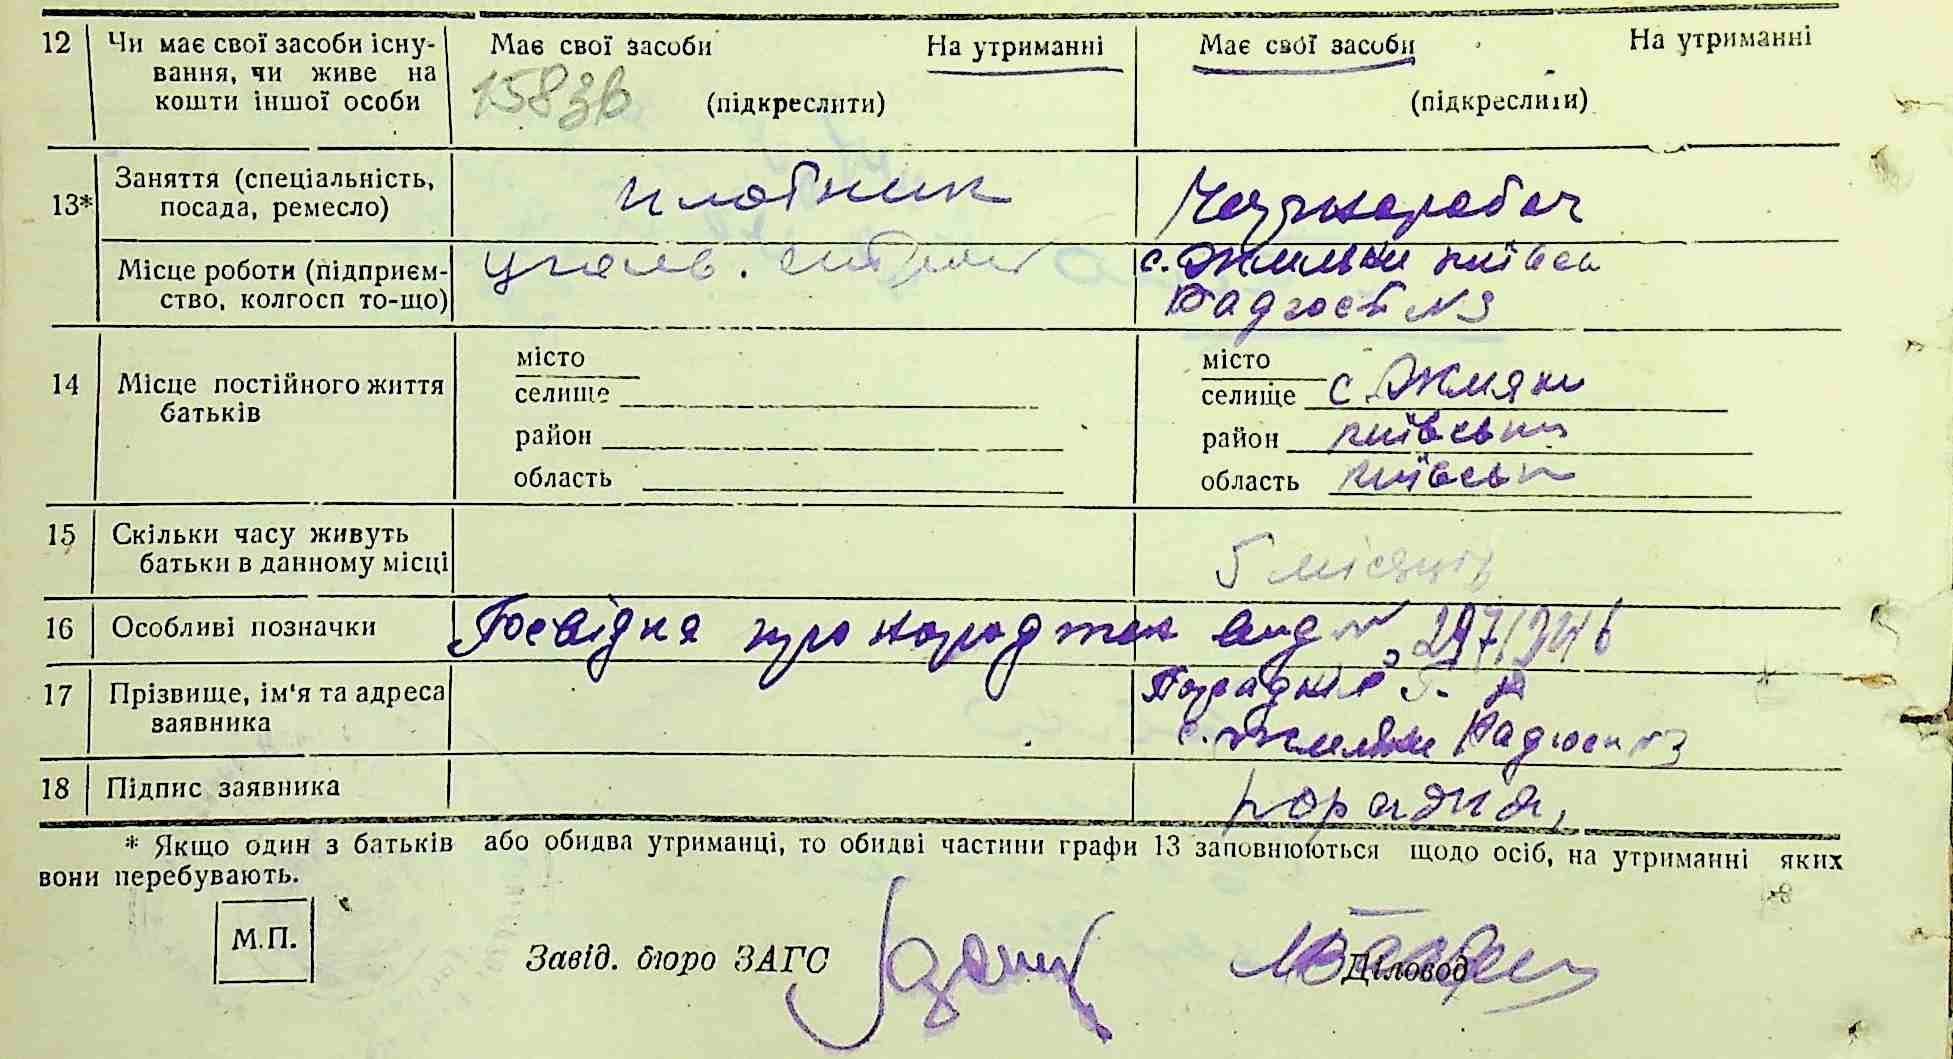 12 Чи має свої засоби існу- Має свої засоби На утриманні Має свої засоби На утриманні
вання, чи живе на
кошти іншої особи 1583в (підкреслити) (підкреслити)
Заняття (спеціальність,
13* посада, ремесло) плотник Чорнораboч
Місце роботи (підприєм- с. Жиляни Київськ
ство, колгосп то-що) Радгосп №3
місто місто
14 Місце постійного життя селище селище с. Жиляни
батьків район район Київськи
область область Київськ
15 Скільки часу живуть
батьки в данному місці 5 місяців
16 Особливі позначки про народжен вид №
17 Прізвище, ім'я та адреса
заявника с. Жиляни Радгосп №3
18 Підпис заявника
* Якщо один з батьків або обидва утриманці, то обидві частини графи 13 заповнюються щодо осіб, на утриманні яких
вони перебувають.
М.П.
Завід. бюро ЗАГС Діловод